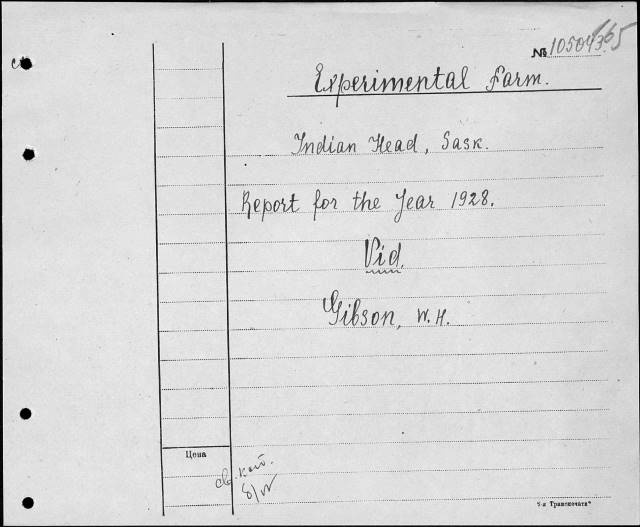 № 10504365
Experimental Farm.
Indian Head, Sask.
Report for the Year 1928.
Vid.
Gibson, W. H.
Цена
св. кат.
8/VI
5-я Транспечать"